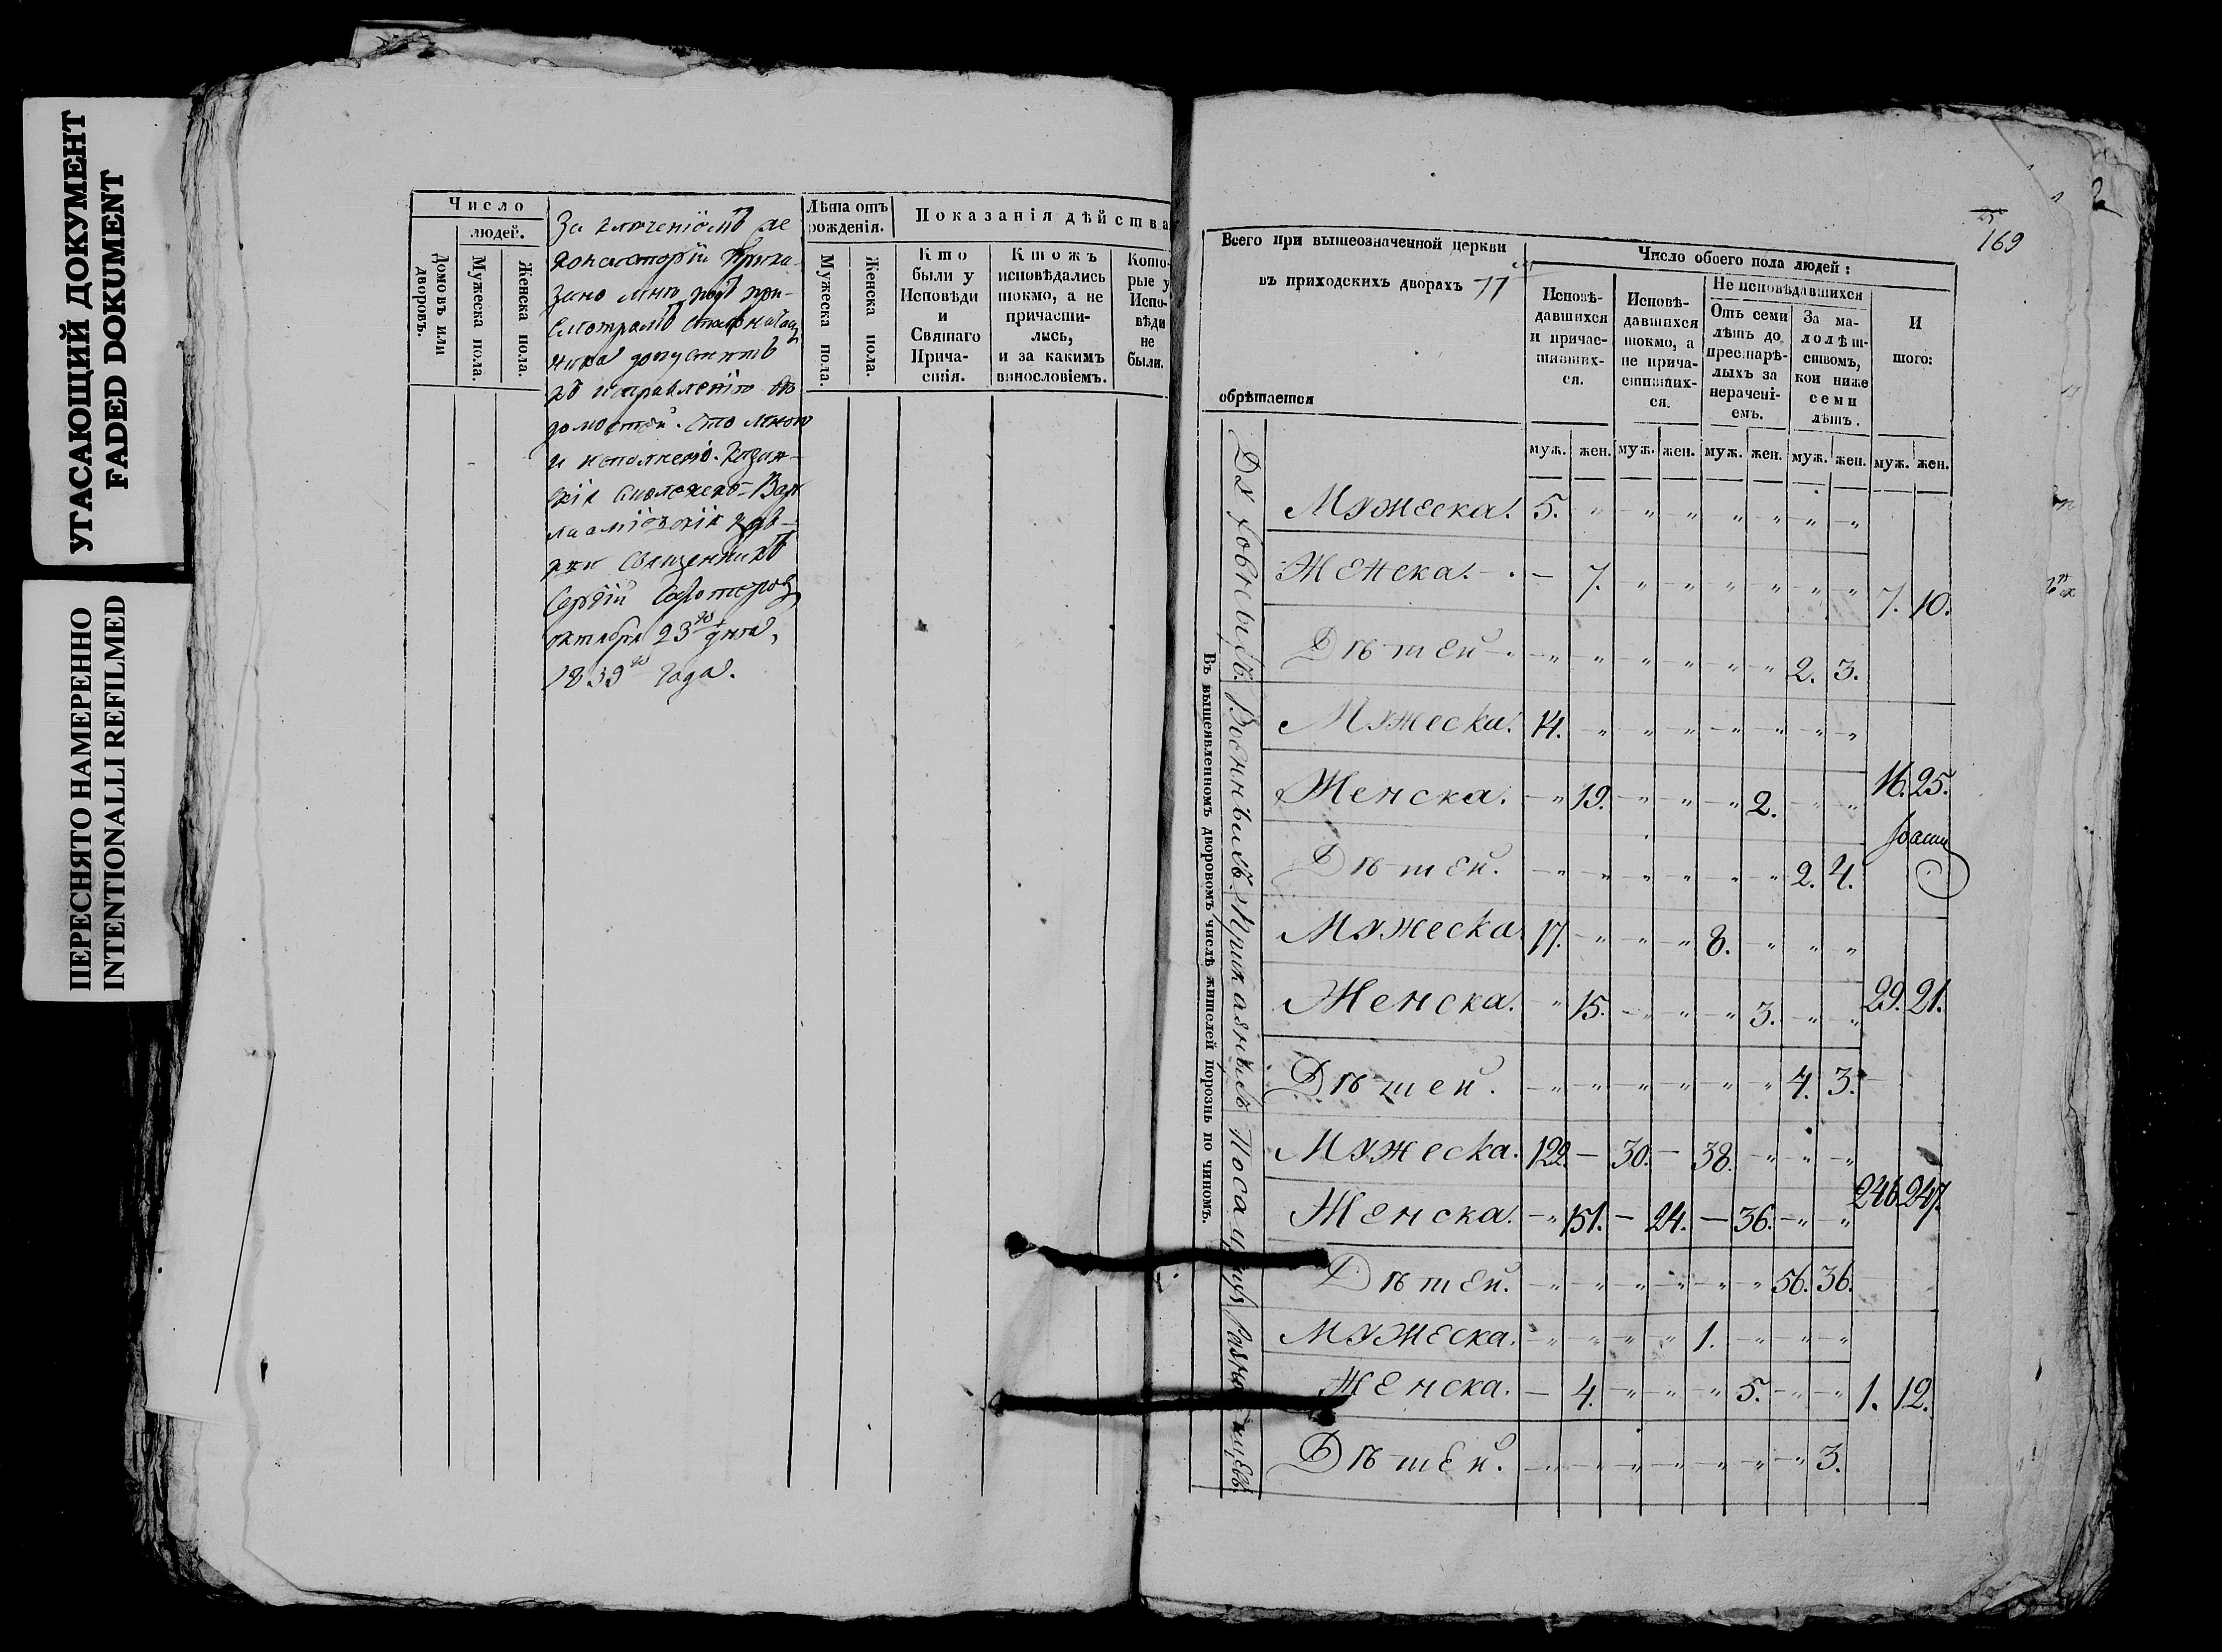 УГАСАЮЩИЙ ДОКУМЕНТ
FADED DOKUMENT
ПЕРЕСНЯТО НАМЕРЕННО
INTENTIONALLI REFILMED
Число
людей.
Домовъ или дворовъ.
Мужеска пола.
Женска пола.
Лѣта отъ рожденія.
Мужеска пола.
Женска пола.
Показанія дѣйства
Кто были у Исповѣди и Святаго Причастія.
Ктожъ исповѣдались токмо, а не причастились, и за какимъ винословіемъ.
Которые у Исповѣди не были.
допустить
къ исправленію вѣ
домостей. Что мною
и исполнено.
священникъ
Сергій
октября 23го дня,
1839го года.
2
25
169
Всего при вышеозначенной церкви
въ приходскихъ дворахъ 77
обрѣтается
Число обоего пола людей:
Исповѣдавшихся и причастившихся.
Исповѣдавшихся токмо, а не причастившихся.
Не исповѣдавшихся
Отъ семи лѣтъ до престарѣлыхъ за нераченіемъ.
За малолѣтствомъ, кои ниже семи лѣтъ.
Итого:
муж. жен. муж. жен. муж. жен. муж. жен. муж. жен.
Въ вышеявленномъ дворовомъ числѣ жителей порознь по чиномъ.
Духовныхъ.
Мужеска. 5. " " " " " " "
Женска. – 7. " " " " " " 7. 10.
Дѣтей " " " " " " 2. 3.
Военныхъ.
Мужеска. 14. " " " " " " "
Женска. " 19. " " " 2. " " 16. 25.
Дѣтей. " " " " " " 2. 4.
Приказныхъ
Мужеска. 17. " " " 8. " " "
Женска. " 15. " " " 3. " " 29. 21.
Дѣтей. " " " " " " 4. 3.
Посацкихъ
Мужеска. 122. – 30. – 38. " " "
Женска. " 151. – 24. – 36. " " 246. 247.
Дѣтей. " " " " " " 56. 36.
Мужеска. " " " " 1. " " "
Женска. – 4. " " " 5. " " 1. 12.
Дѣтей. " " " " " " " 3.